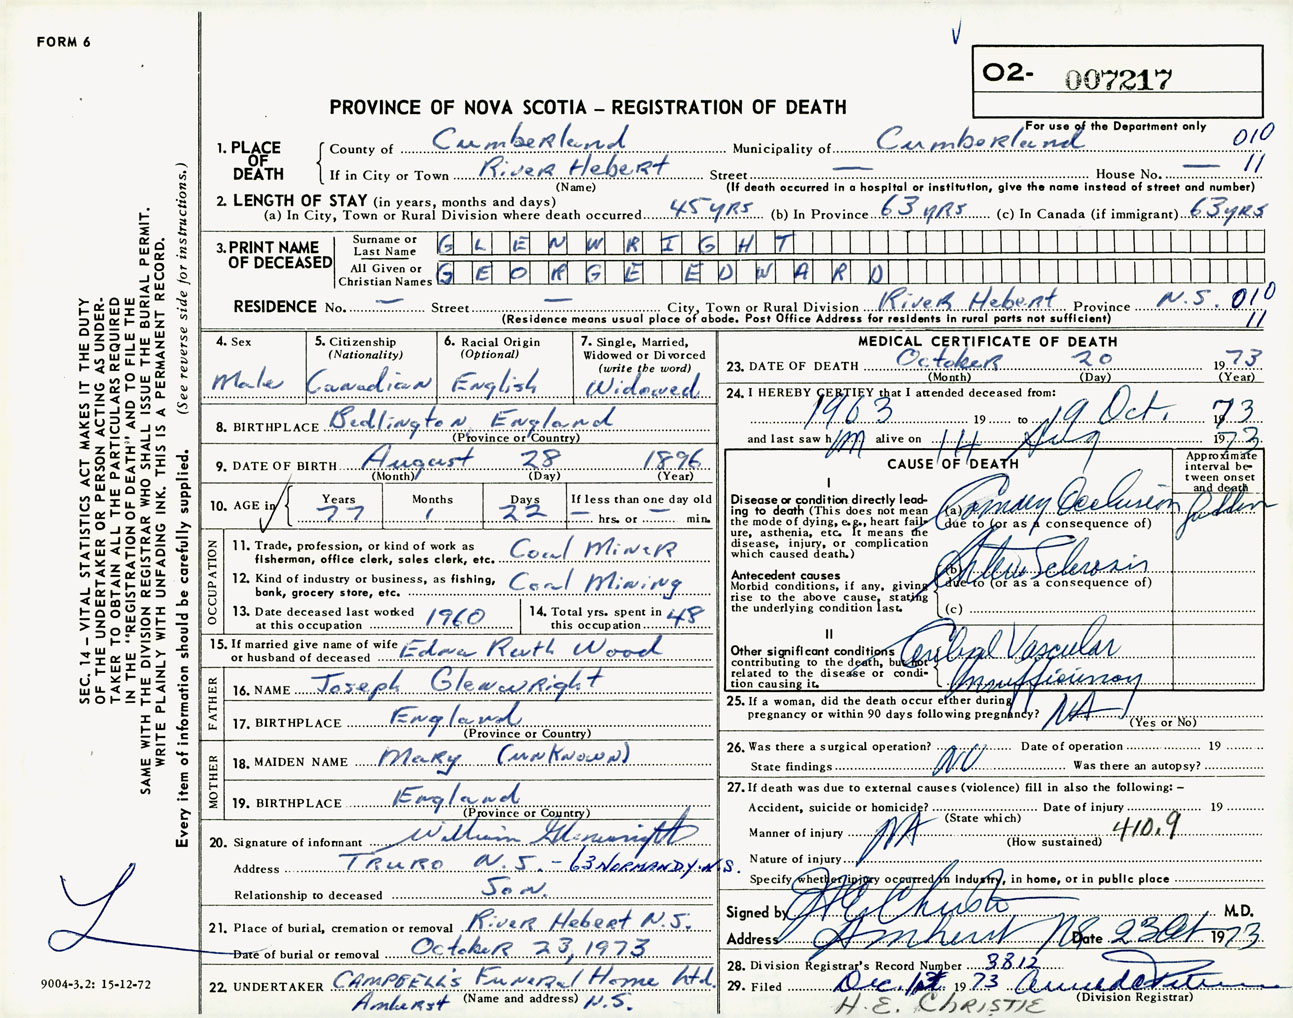 FORM 6
O2- 007217
PROVINCE OF NOVA SCOTIA – REGISTRATION OF DEATH
For use of the Department only
SEC. 14 – VITAL STATISTICS ACT MAKES IT THE DUTY
OF THE UNDERTAKER OR PERSON ACTING AS UNDER-
TAKER TO OBTAIN ALL THE PARTICULARS REQUIRED
IN THE "REGISTRATION OF DEATH" AND TO FILE THE
SAME WITH THE DIVISION REGISTRAR WHO SHALL ISSUE THE BURIAL PERMIT.
WRITE PLAINLY WITH UNFADING INK. THIS IS A PERMANENT RECORD.
Every item of information should be carefully supplied. (See reverse side for instructions.)
1. PLACE OF DEATH County of Cumberland Municipality of Cumberland 010
If in City or Town River Hebert Street — House No. — 11
(Name) (If death occurred in a hospital or institution, give the name instead of street and number)
2. LENGTH OF STAY (in years, months and days)
(a) In City, Town or Rural Division where death occurred 45 yrs (b) In Province 63 yrs (c) In Canada (if immigrant) 63 yrs
3. PRINT NAME OF DECEASED Surname or Last Name GLENWRIGHT
All Given or Christian Names GEORGE EDWARD
RESIDENCE No. — Street — City, Town or Rural Division River Hebert Province N.S. 010
(Residence means usual place of abode. Post Office Address for residents in rural parts not sufficient) 11
4. Sex Male
5. Citizenship (Nationality) Canadian
6. Racial Origin (Optional) English
7. Single, Married, Widowed or Divorced (write the word) Widowed
8. BIRTHPLACE Bedlington England
(Province or Country)
9. DATE OF BIRTH August 28 1896
(Month) (Day) (Year)
10. AGE in Years 77 Months 1 Days 22 If less than one day old — hrs. or — min.
OCCUPATION
11. Trade, profession, or kind of work as fisherman, office clerk, sales clerk, etc. Coal Miner
12. Kind of industry or business, as fishing, bank, grocery store, etc. Coal Mining
13. Date deceased last worked at this occupation 1960
14. Total yrs. spent in this occupation 48
15. If married give name of wife or husband of deceased Edna Ruth Wood
FATHER
16. NAME Joseph Glenwright
17. BIRTHPLACE England
(Province or Country)
MOTHER
18. MAIDEN NAME Mary (unknown)
19. BIRTHPLACE England
(Province or Country)
20. Signature of informant William Glenwright
Address Truro N.S. - 63 NORMANDY. N.S.
Relationship to deceased Son.
21. Place of burial, cremation or removal River Hebert N.S.
Date of burial or removal October 23, 1973
22. UNDERTAKER Campbell's Funeral Home Ltd.
(Name and address) Amherst N.S.
MEDICAL CERTIFICATE OF DEATH
23. DATE OF DEATH October 20 1973
(Month) (Day) (Year)
24. I HEREBY CERTIFY that I attended deceased from:
1963 19 to 19 Oct. 1973
and last saw him alive on 14 Aug 1973
CAUSE OF DEATH
Approximate interval between onset and death
I
Disease or condition directly leading to death (This does not mean the mode of dying, e.g., heart failure, asthenia, etc. It means the disease, injury, or complication which caused death.)
(a) Coronary Occlusion Sudden
due to (or as a consequence of)
Antecedent causes
Morbid conditions, if any, giving rise to the above cause, stating the underlying condition last.
(b) Arterio Sclerosis
due to (or as a consequence of)
(c)
II
Other significant conditions contributing to the death, but not related to the disease or condition causing it.
Cerebral Vascular
insufficiency
25. If a woman, did the death occur either during pregnancy or within 90 days following pregnancy? NA (Yes or No)
26. Was there a surgical operation? Date of operation 19
State findings NO Was there an autopsy?
27. If death was due to external causes (violence) fill in also the following: –
Accident, suicide or homicide? Date of injury 19
(State which)
Manner of injury NA 410.9
(How sustained)
Nature of injury
Specify whether injury occurred in industry, in home, or in public place
Signed by H E Christie M.D.
Address Amherst NS Date 23 Oct 1973
28. Division Registrar's Record Number 3812
29. Filed Dec. 1st 1973
(Division Registrar)
H.E. CHRISTIE
9004-3.2: 15-12-72